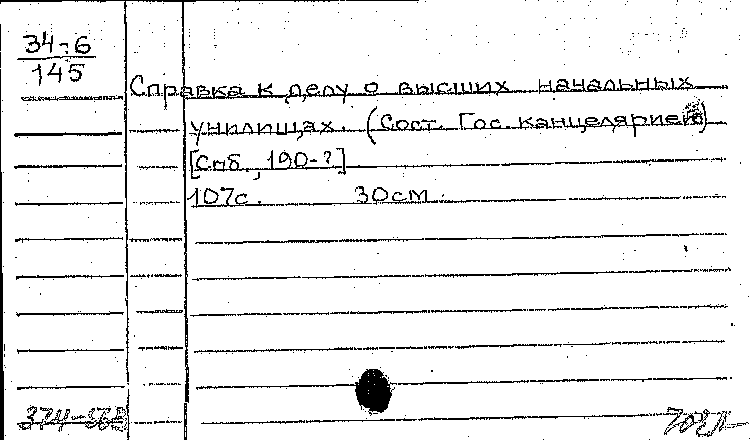 34-6
145
Справка к делу о высших начальных
училищах. (Сост. Гос. канцелярией)
[Спб., 190-?]
107с. 30см.